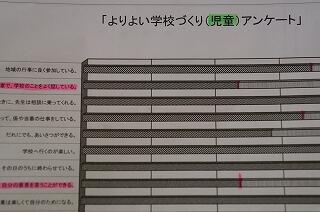 「よりよい学校づくり(児童)アンケート」
地域の行事に良く参加している。
家で、学校のことをよく話している。
きに、先生は相談に乗ってくれる。
って、係や当番の仕事をしている。
だれにでも、あいさつができる。
学校へ行くのが楽しい。
その日のうちに終わらせている。
自分の意見を言うことができる。
業は楽しく自分のためになる。